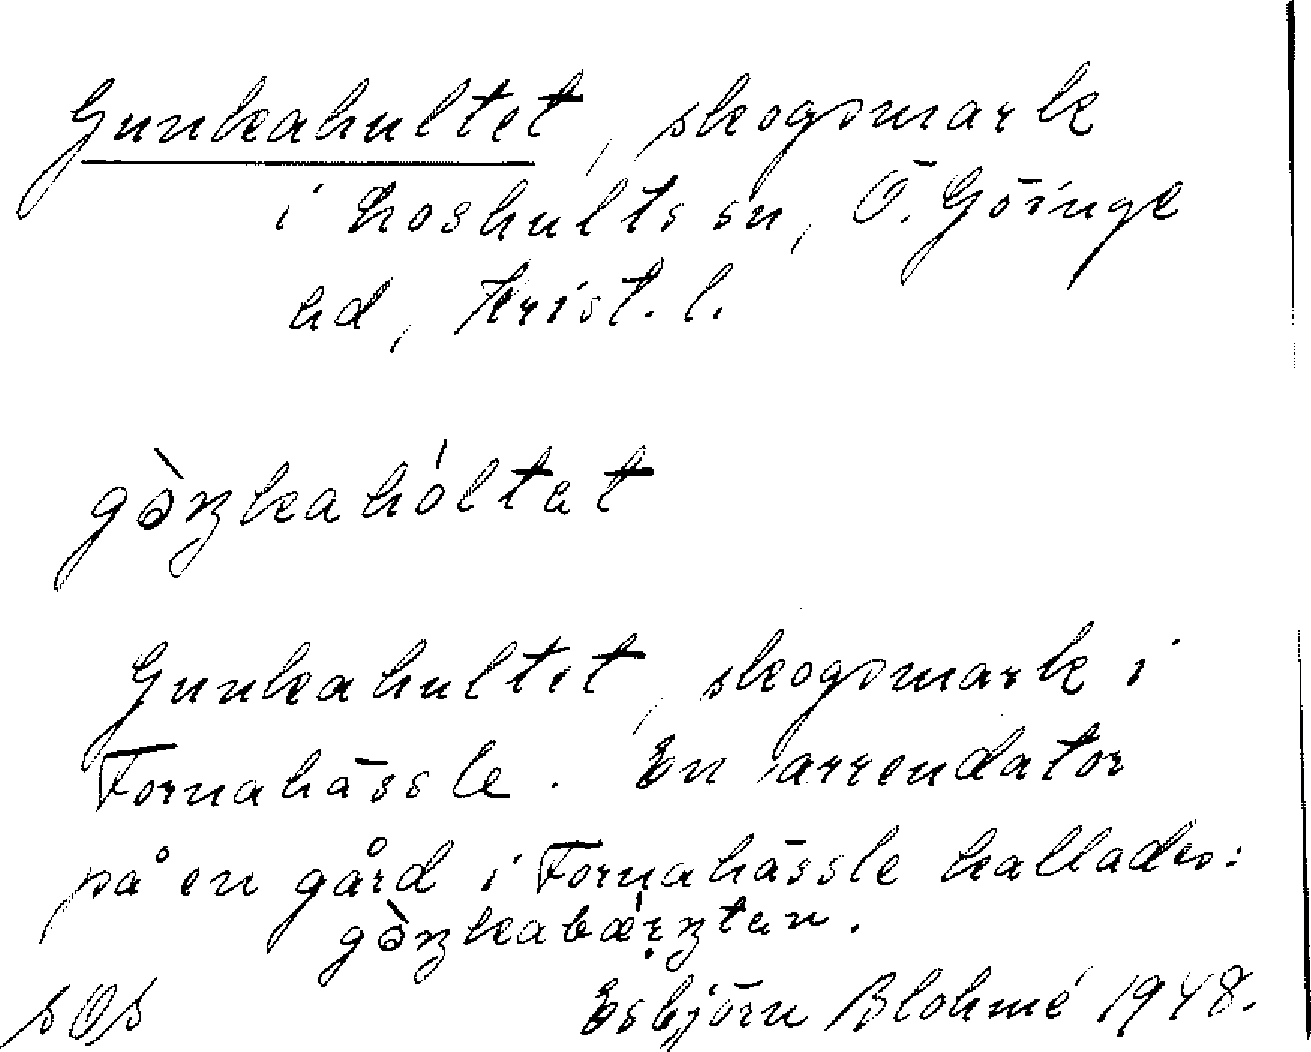 Gunkahultet, skogsmark
i Loshults sn, Ö. Göinge
hd, Krist. l.
gòŋkahóltat
Gunkahultet, skogsmark i
Fornahässle. En arrendator
på en gård i Fornahässle kallades:
SOS Esbjörn Blohmé 1948.